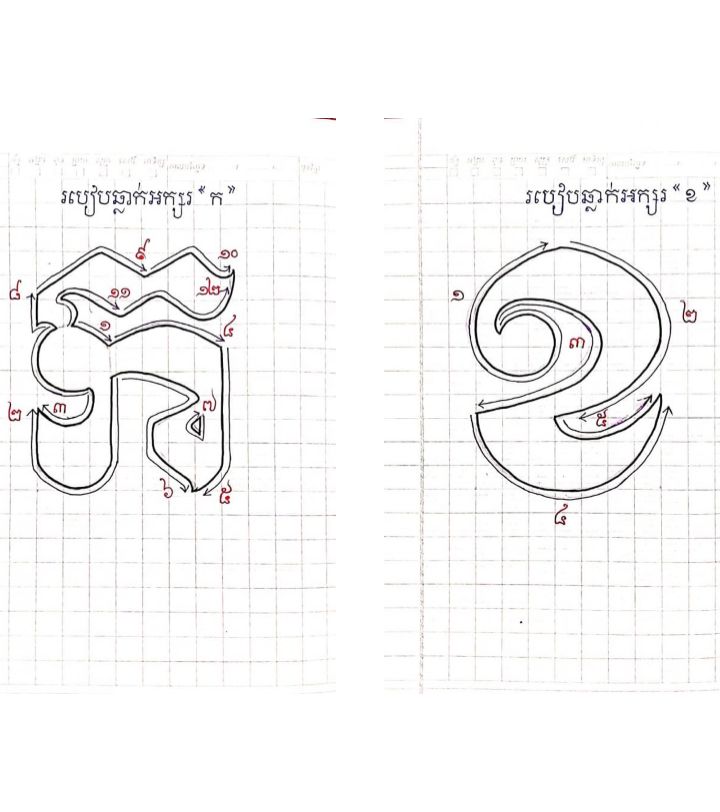 របៀបឆ្លាក់អក្សរ “ ក ”
៩
១០
៨
១១
១២
១
៤
២
៣
៧
៦
៥
របៀបឆ្លាក់អក្សរ “ ខ ”
១
២
៣
៥
៤